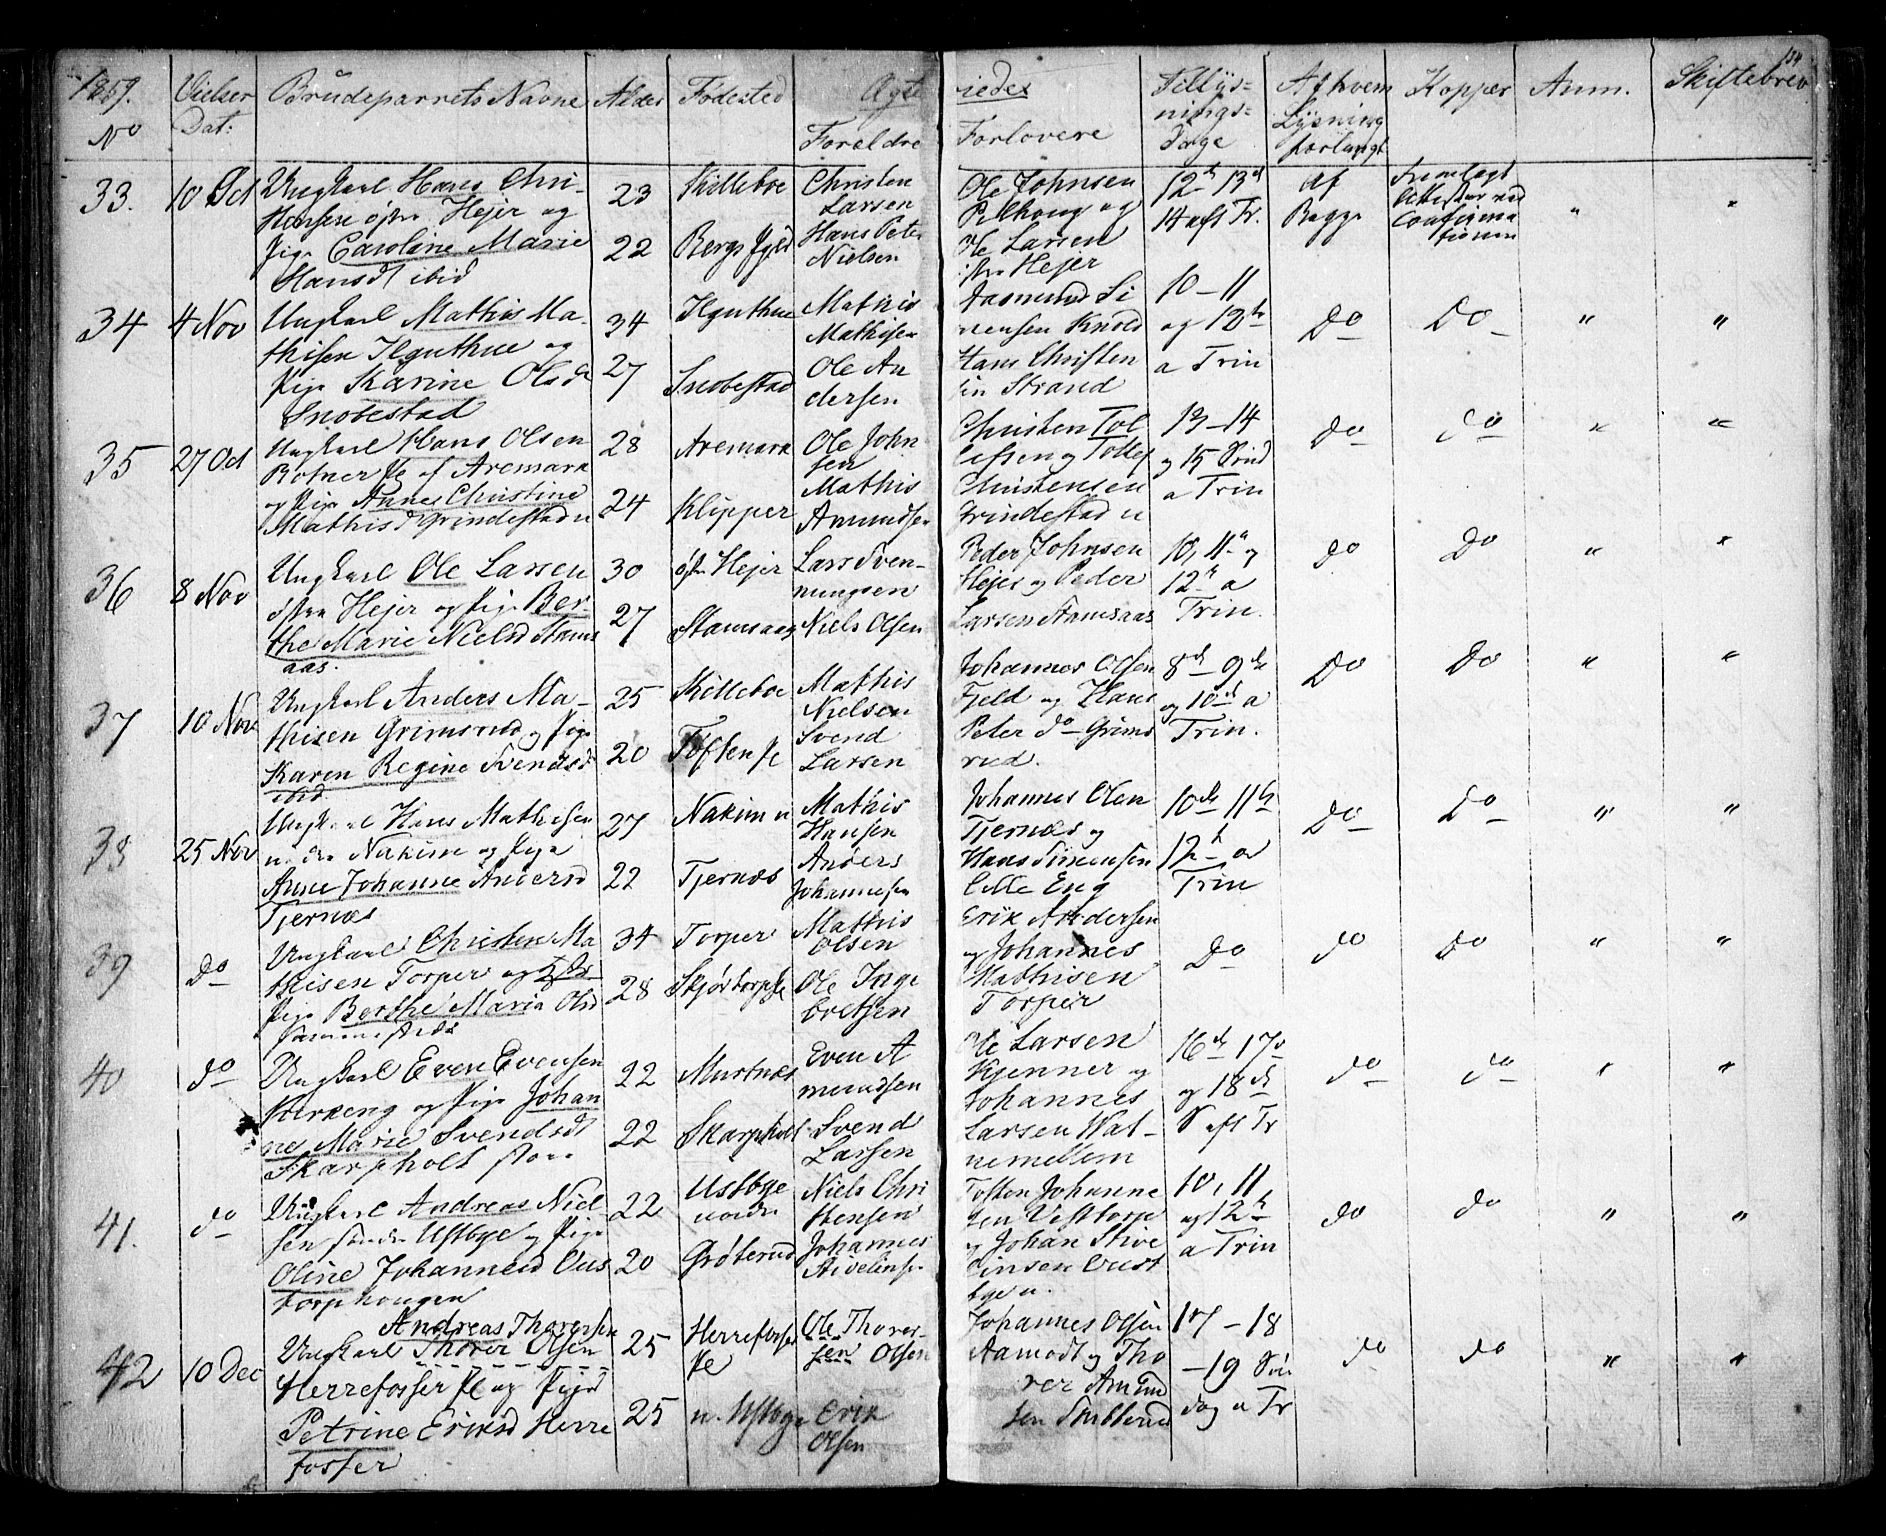 1859.
No
Vielses
Dat:
Brudeparrets Navne
Alder
Fødested
Ægte
Forældre
viedes
Forlovere
Tillys=
nings=
Dage
Af hvem
Lysning
forlangt
Kopper
Anm.
Skiftebrev
134
33.
10 Oct
Ungkarl Hans Chri-
stensen østre Hejer og
Pige Caroline Marie
Hansdt ibid
23
22
Skilleboe
Christen
Larsen
Hans Peter
Nielsen
Ole Johnsen
og
Ole Larsen
østre Hejer
12te 13de
14 aft Tr.
Af
Begge
Fremlagt
Attester ved
Confirma
tionen
"
"
34
4 Nov
Ungkarl Mathis Ma-
thisen Ilguthue og
Pige Karine Olsdt
Snobestad
34
27
Ilguthue
Snobestad
Mathis
Mathisen
Ole An
dersen
Aasmund Si
mensen Knold
Hans Christen
sen Strand
10 – 11
og 12te
a Trin
Do
Do
"
"
35
27 Oct
Ungkarl Hans Olsen
Botner Pl af Aremark
og Pige Annes Christine
Mathisd Grindestad n
28
24
Aremark
Klipper
Ole John
sen
Mathis
Amundsen
Christen Tol
lefsen og Tollef
Christensen
Grindestad n
13 – 14
og 15 Sønd
a Trin
Do
do
"
"
36
8 Nov
Ungkarl Ole Larsen
østre Hejer og Pige Ber-
the Marie Nielsd Stams
aas.
30
27
øst Hejer
Stamsaas
Lars Sven-
nungsen
Niels Olsen
Peder Johnsen
Hejer og Peder
Larsen Stamsaas
10, 11te og
12te a
Trin.
Do
Do
"
"
37
10 Nov
Ungkarl Anders Ma-
thisen Grimsrud og Pige
Karen Regine Svendsd
ibid
25
20
Skilleboe
Toften Pl
Mathis
Nielsen
Svend
Larsen
Johannes Olsen
Fjeld og Hans
Peter do Grims
rud.
8de – 9de
og 10de a
Trin.
Do
Do
"
"
38
25 Nov
Ungkarl Hans Mathisen
nedre Nakim og Pige
Anne Johanne Andersd
Tjernæs
27
22
Nakim n
Tjernæs
Mathis
Hansen
Anders
Johannesen
Johannes Olsen
Tjernæs og
Hans Simensen
Lille Eng
10de 11te
12te a
Trin
Do
Do
"
"
39
Do
Ungkarl Christen Ma
thisen Torper og
Pige Berthe Maria Olsd
sammesteds
34
28
Torper
Skjøltorp Pl
Mathis
Olsen
Ole Inge
bretsen
Erik Andersen
og Johannes
Mathisen
Torper
Do
do
Do
"
"
40
do
Ungkarl Even Evensen
Kirkeng og Pige Johan
nes Marie Svendsdt
Skarpholt store
22
22
Murtnæs
Skarpholt
Even A
mundsen
Svend
Larsen
Ole Larsen
Kjenner og
Johannes
Larsen Wat-
nemellem
16de 17de
og 18de
S aft Tr
do
do
"
"
41.
do
Ungkarl Andreas Niel
sen søndre Ustbye og Pige
Oline Johannesd Ous
torphougen
22
20
Ustbye
nordre
Grøterud
Niels Chri
stensen
Johannes
Aivelinsen
Tosten Johanne
sen Vesttorp
og Johan Stive
linsen Oust
bye n.
10, 11
og 12te
a Trin
do
do
"
"
42
10 Dec
Andreas Thoresen
Ungkarl Thorer Olsen
Herrefosser Pl og Pige
Petrine Eriksd Herre
fosser
25
25
Herrefosser
Pl
n. Ustbye
Ole Thores-
sen Olsen
Erik
Olsen
Johannes Olsen
Aamodt og Tho
rer Amund
sen Skulterud
17 – 18
– 19 Søn
dag a Tr
do
do
"
"